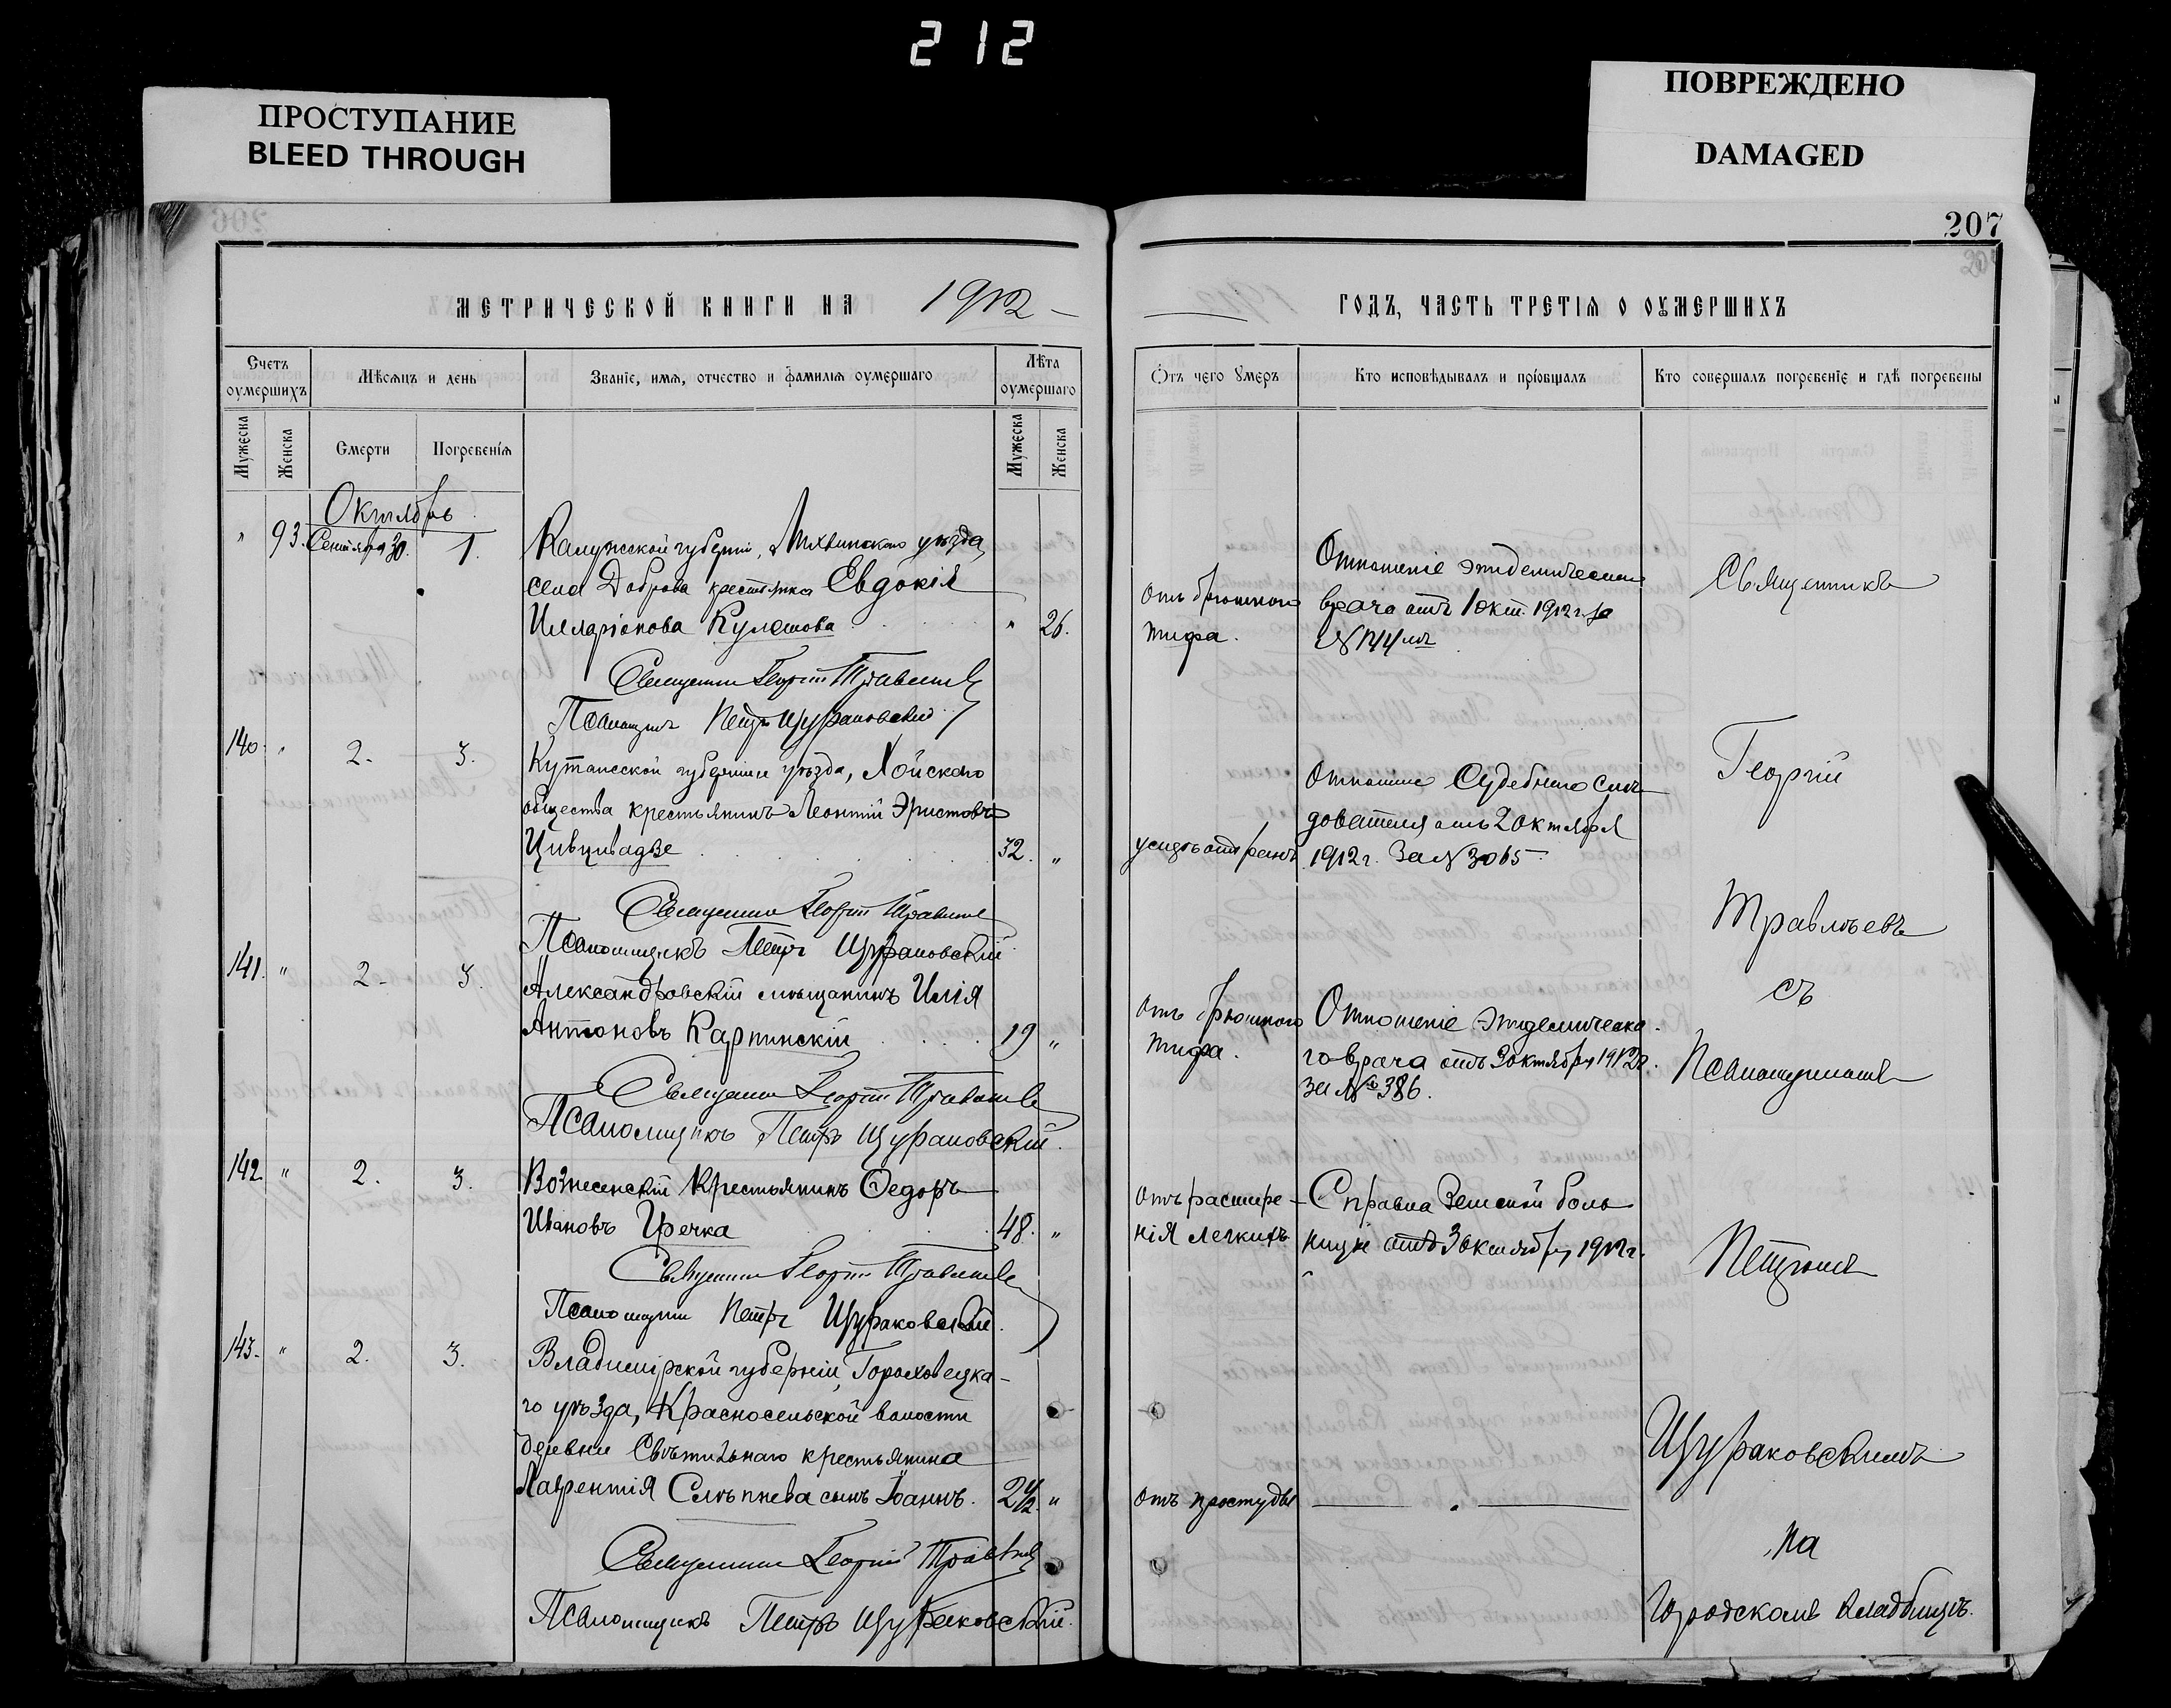 212
ПРОСТУПАНИЕ
BLEED THROUGH
ПОВРЕЖДЕНО
DAMAGED
207
МЕТРИЧЕСКОЙ КНИГИ НА 1912
ГОДЪ, ЧАСТЬ ТРЕТІЯ О ОУМЕРШИХЪ
Счетъ оумершихъ
Мѣсяцъ и день
Званіе, имя, отчество и фамилія оумершаго
Лѣта оумершаго
Отъ чего умеръ
Кто исповѣдывалъ и пріобщалъ
Кто совершалъ погребеніе и гдѣ погребены
Мужеска
Женска
Смерти
Погребенія
Мужеска
Женска
Октябрь
" 93. Сентября 30. 1.
Калужской губерніи, Лихвинскаго уѣзда,
села Доброва крестьянка Евдокія
Илларіонова Кулешова " 26.
Отъ брюшного
тифа.
Отношеніе эпидемическаго
врача отъ 1 окт. 1912 г. за
Священникъ
Священникъ Георгій Травлѣевъ
Псаломщикъ Петръ Щураковскій
140. " 2. 3.
Кутаисской губерніи уѣзда, Хойскаго
общества крестьянинъ Леонтій Эристовъ
Цивцивадзе 32. "
умеръ отъ ранъ
Отношеніе Судебнаго Слѣ-
дователя отъ 2 октября
1912 г. За № 3065
Георгій
Священникъ Георгій Травлѣевъ
Псаломщикъ Петръ Щураковскій
Травлѣевъ
141. " 2. 3.
Александровскій мѣщанинъ Илія
Антоновъ Карпинскій 19 "
Отъ брюшного
тифа.
Отношеніе эпидемическа-
го врача отъ 3 октября 1912 г.
за № 386.
съ
Псаломщикомъ
Священникъ Георгій Травлѣевъ
Псаломщикъ Петръ Щураковскій.
142 " 2. 3.
Вознесенскій крестьянинъ Ѳедоръ
Ивановъ Гречка 48. "
Отъ расшире-
нія легкихъ
Справка Земской боль
ницы отъ 3 октября 1912 г.
Петромъ
Священникъ Георгій Травлѣевъ
Псаломщикъ Петръ Щураковскій.
143. " 2. 3.
Владимірской губерніи, Гороховецка-
го уѣзда, Красносельской волости
деревни Свѣтильнаго крестьянина
Лаврентія Слѣпнева сынъ Іоаннъ. 2 1/2. "
отъ простуды
Щураковскимъ
на
Священникъ Георгій Травлѣевъ
Псаломщикъ Петръ Щураковскій.
Городскомъ кладбищѣ.